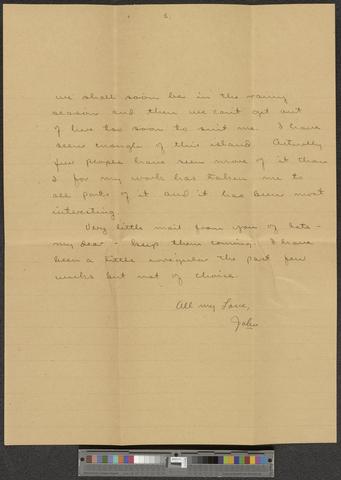 we shall soon be in the rainy
season and then we can't get out
of here too soon to suit me. I have
seen enough of this island. Actually
few people have seen more of it than
I for my work has taken me to
all parts of it and it has been most
interesting.
Very little mail from you of late -
my dear - keep them coming. I have
been a little irregular the past few
weeks but not of choice.
All my Love,
John